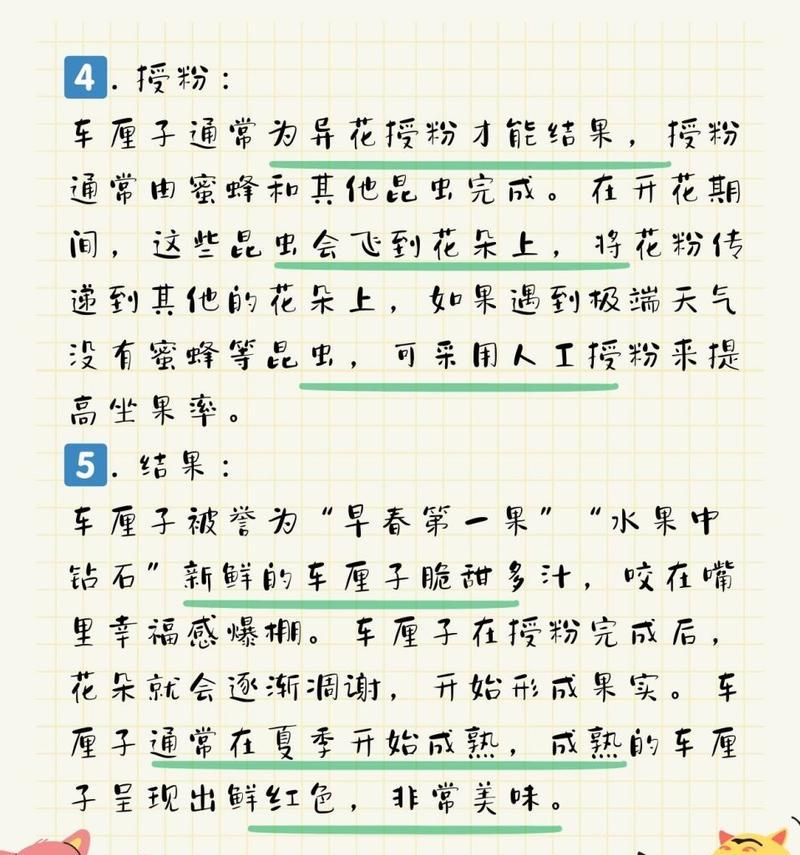 4. 授粉：
车厘子通常为异花授粉才能结果，授粉
通常由蜜蜂和其他昆虫完成。在开花期
间，这些昆虫会飞到花朵上，将花粉传
递到其他的花朵上，如果遇到极端天气
没有蜜蜂等昆虫，可采用人工授粉来提
高坐果率。
5. 结果：
车厘子被誉为“早春第一果”“水果中
钻石”新鲜的车厘子脆甜多汁，咬在嘴
里幸福感爆棚。车厘子在授粉完成后，
花朵就会逐渐凋谢，开始形成果实。车
厘子通常在夏季开始成熟，成熟的车厘
子呈现出鲜红色，非常美味。